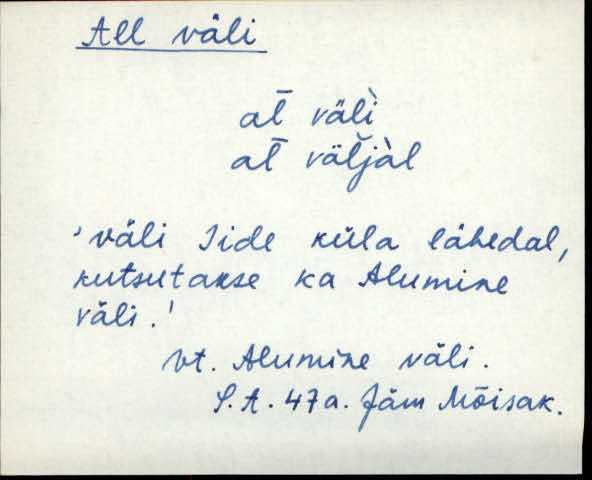 All väli
al̄ välì̬
al̄ väl̆jàl
'väli Iide küla lähedal,
kutsutakse ka Alumine
väli.'
Vt. Alumine väli.
S.A. 47a. Jäm Mõisak.